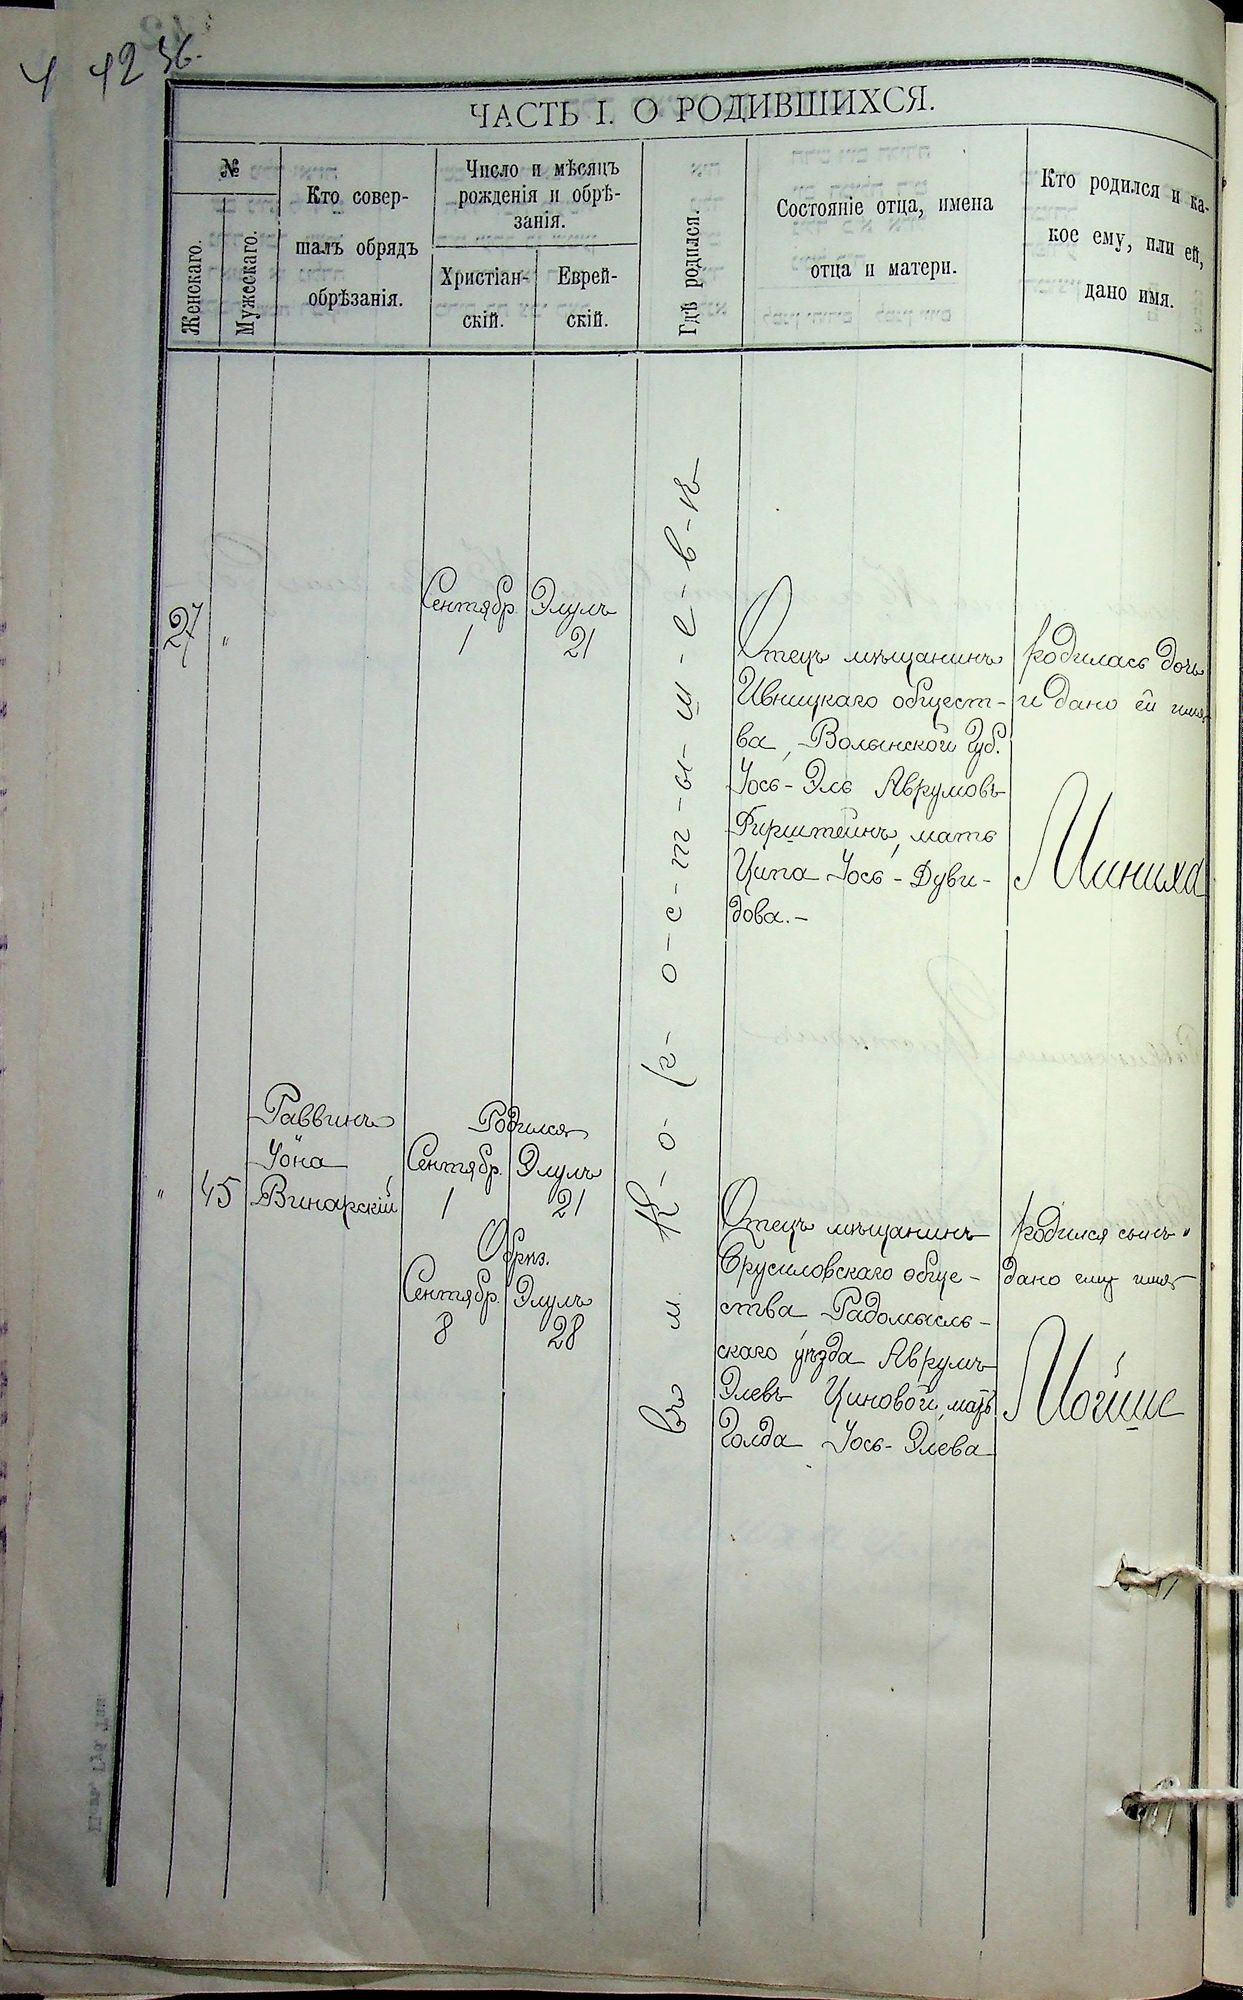 42 36.
ЧАСТЬ I. О РОДИВШИХСЯ.
№
Женскаго.
Мужескаго.
Кто совер-
шалъ обрядъ
обрѣзанія.
Число и мѣсяцъ
рожденія и обрѣ-
занія.
Христіан-
скій.
Еврей-
скій.
Гдѣ родился.
Состояніе отца, имена
отца и матери.
Кто родился и ка-
кое ему, или ей,
дано имя.
27 "
Сентябр. Элулъ
1 21
Отецъ мѣщанинъ
Ивницкаго общест-
ва, Волынской Губ.
Іось-Эль Аврумовъ
Гирштейнъ, мать
Ципа Іось-Дуви-
дова.-
родилась дочь
и дано ей имя
Миниха
въ м. К-о-р-о-с-т-ы-ш-е-в-ѣ
" 45
Раввинъ
Іона
Винарскій
Родился
Сентябр. Элулъ
1 21
Обрѣз.
Сентябр. Элулъ
8 28
Отецъ мѣщанинъ
Брусиловскаго обще-
ства Радомысль-
скаго уѣзда Аврумъ
Элевъ Циновой, мать
Голда Іось-Элева
родился сынъ "
дано ему имя
Мойше